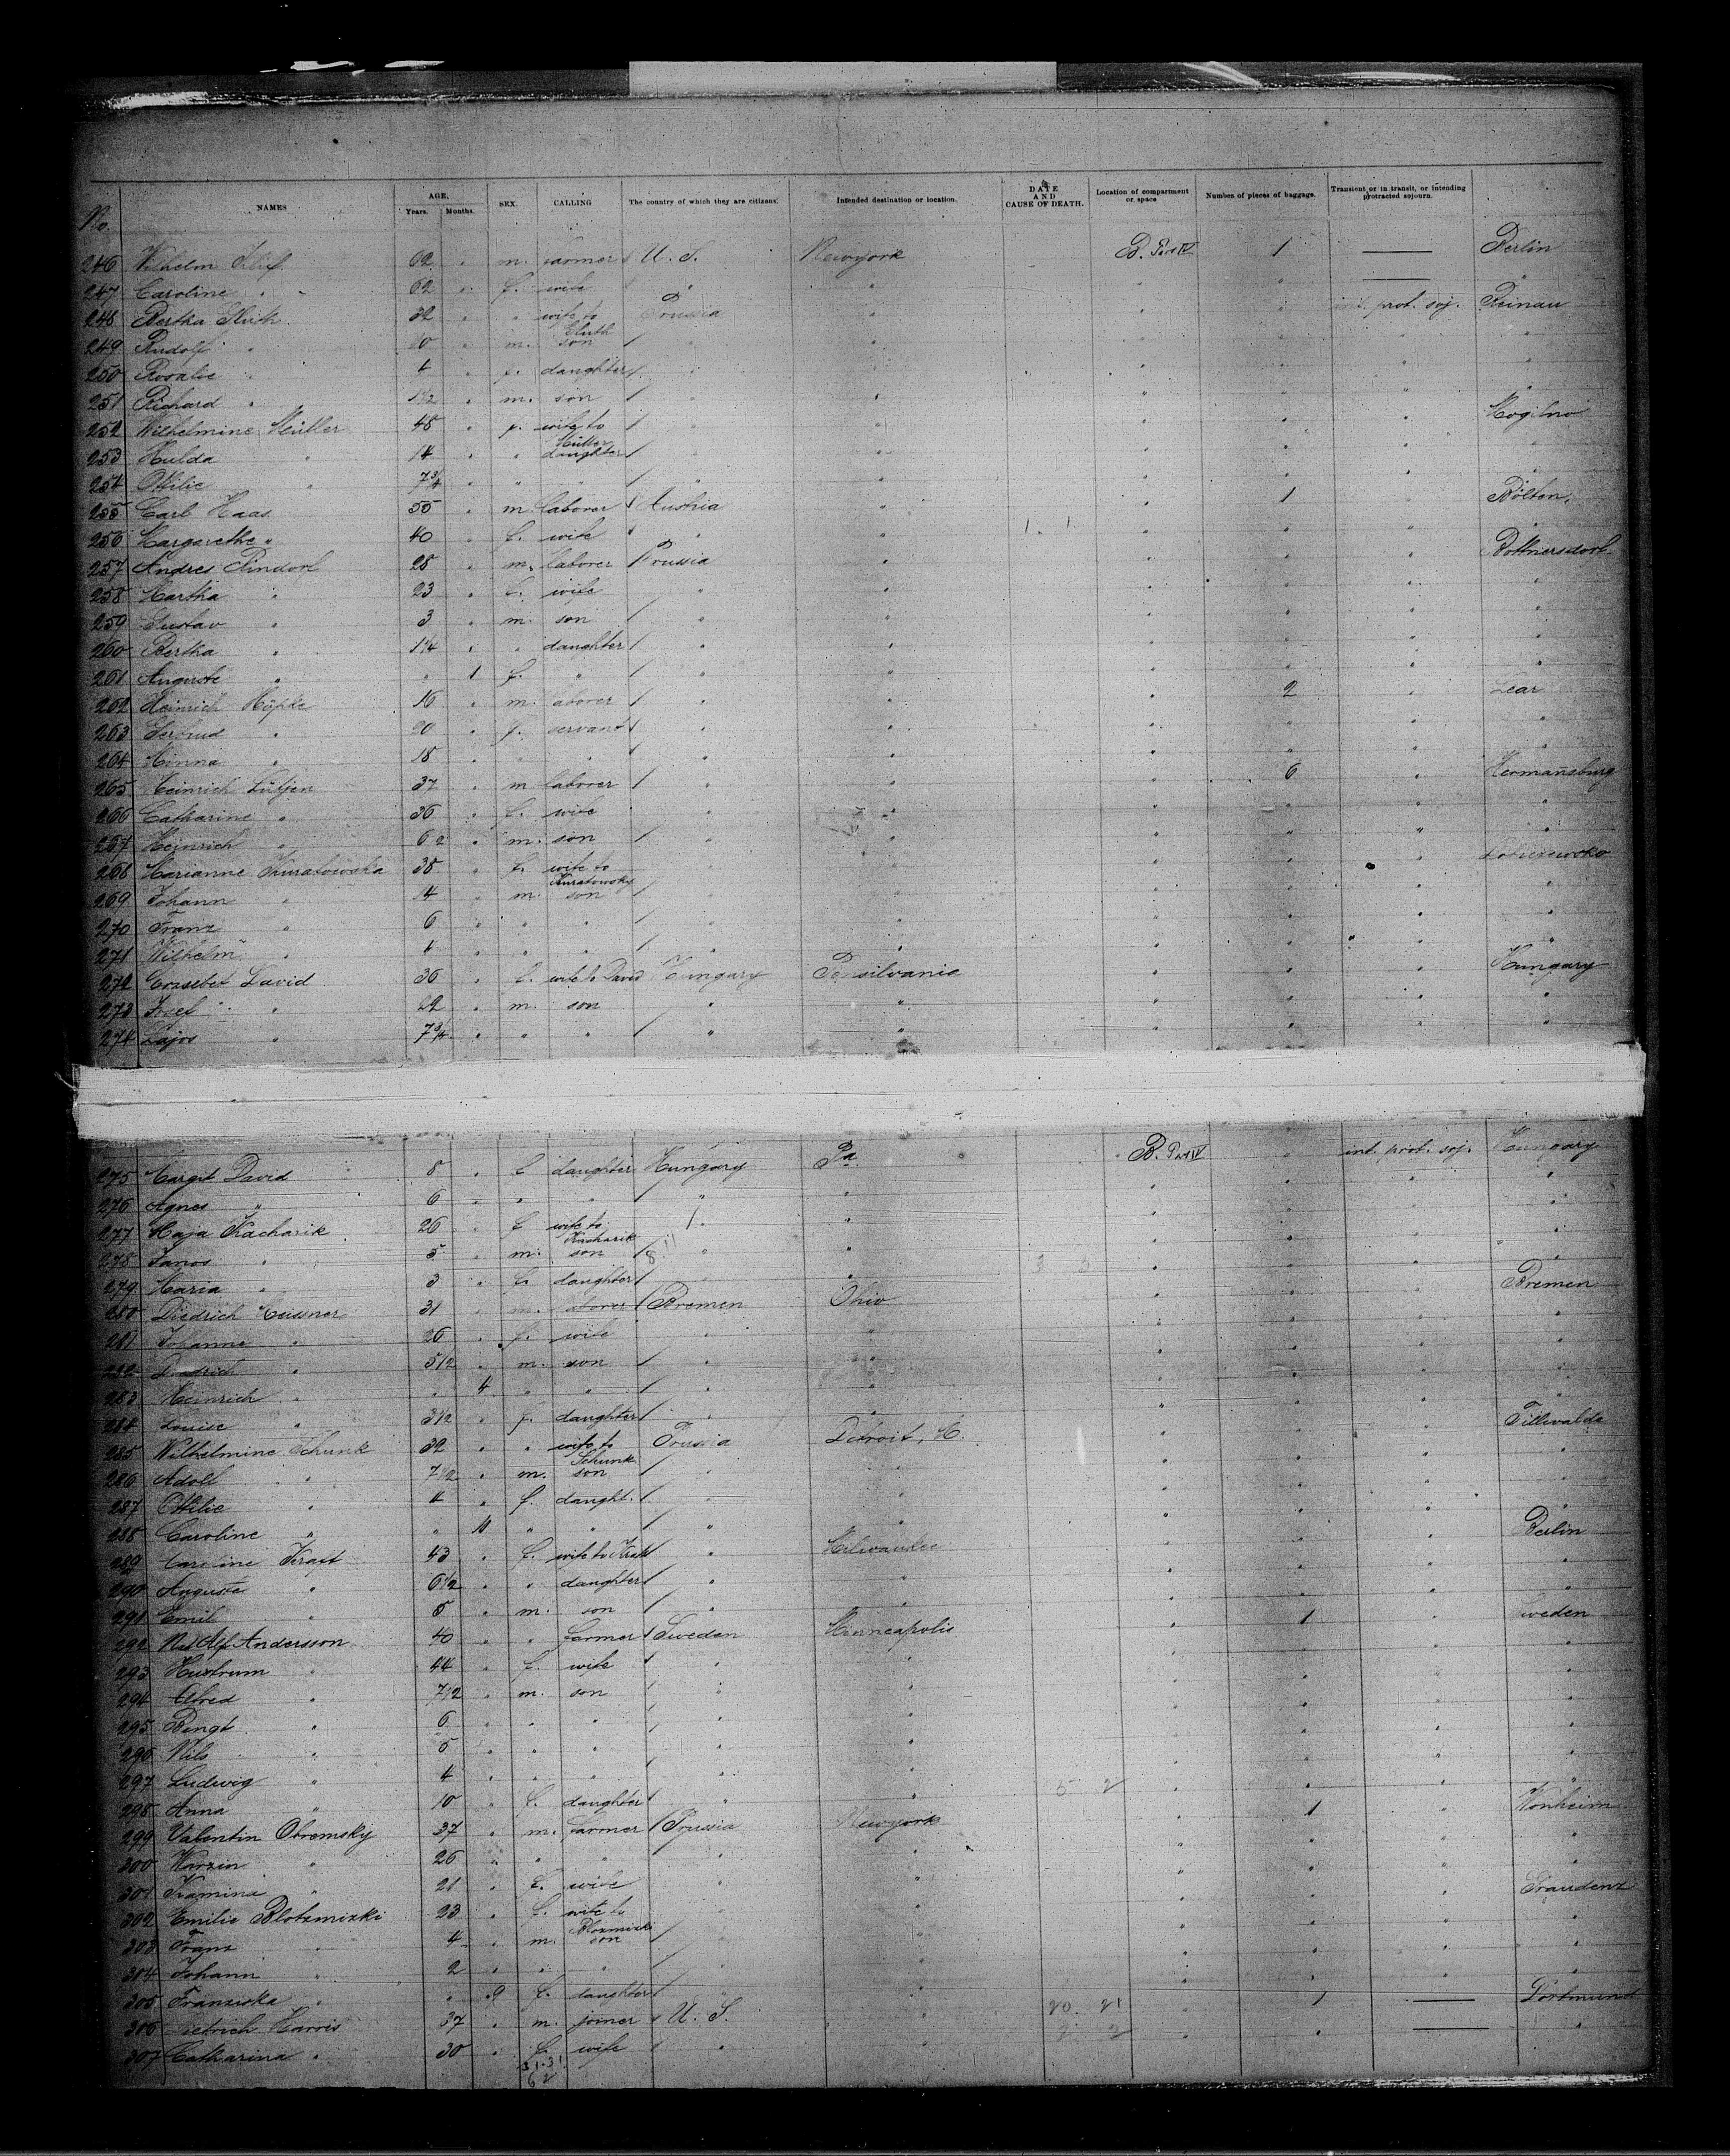 No. NAMES AGE. Years. Months. SEX. CALLING The country of which they are citizens. Intended destination or location. DATE AND CAUSE OF DEATH. Location of compartment or space Number of pieces of baggage. Transient or in transit, or intending protracted sojourn.
246 Wilhelm 62 " m. farmer U. S. Newyork B. 1 — Berlin
247 Caroline " 62 " f. wife " " " " — "
248 Bertha 32 " " wife to Prussia " " " int. prot. soj. Reinau
249 Rudolf " m. son " " " " " "
250 Rosalie " 4 " f. daughter " " " " " "
251 Richard " 1 1/2 " m. son " " " " " "
252 Wilhelmine Müller 48 " f. wife to Müller " " " " " Mogilno
253 Hulda " 14 " " daughter " " " " " "
254 Ottilie " 7 3/4 " " " " " " " " "
255 Carl Haas 55 " m. laborer Austria " " 1 " Bölten
256 Margarethe " 40 " f. wife " " " " " "
257 Andres Pindorf 28 " m. laborer Prussia " " " "
258 Martha " 23 " f. wife " " " " " "
259 Gustav " 3 " m. son " " " " " "
260 Bertha " 1 1/4 " " daughter " " " " " "
261 Auguste " " 1 f. " " " " " " "
262 Heinrich Höpke 16 " m. laborer " " " 2 " Lear
263 Gertrud " 20 " f. servant " " " " " "
264 Minna " 18 " " " " " " " " "
265 Heinrich Lütjen 37 " m. laborer " " " 6 " Hermannsburg
266 Catharine " 36 " f. wife " " " " " "
267 Heinrich " 6 1/2 " m. son " " " " " "
268 Marianne Kuratowska 38 " f. wife to Kuratowsky " " " " "
269 Johann " 14 " m. son " " " " " "
270 Franz " 6 " " " " " " " " "
271 Wilhelm " 4 " " " " " " " " "
272 Erzsebet David 36 " f. wife to David Hungary Pensilvania " " " Hungary
273 " 22 " m. son " " " " " "
274 Lajos " 7 3/4 " " " " " " " " "
275 Margit David 8 " f. daughter Hungary Pa. B. " int. prot. soj. Hungary
276 Agnes " 6 " " " " " " " " "
277 Kacharik 26 " f. wife to Kacharik " " " " " "
278 Janos " 5 " m. son " " " " " "
279 Maria " 3 " f. daughter " " " " " "
280 Diedrich Meissner 31 " m. laborer Bremen Ohio " " " Bremen
281 Johanne " 26 " f. wife " " " " " "
282 Diedrich " 5 1/2 " m. son " " " " " "
283 Heinrich " " 4 " " " " " " " "
284 Louise " 3 1/2 " f. daughter " " " " " "
285 Wilhelmine Schunk 32 " " wife to Schunk Prussia Detroit, M. " " " Tillwalde
286 Adolf " 7 1/2 " m. son " " " " " "
287 Ottilie " 4 " f. daught. " " " " " "
288 Caroline " " 10 " " " " " " " "
289 Caroline Kraft 43 " f. wife to Kraft " Milwaukee " " " Berlin
290 Auguste " 6 1/2 " " daughter " " " " " "
291 Emil " 5 " m. son " " " " " "
292 Andersson 40 " " farmer Sweden Minneapolis " 1 " Sweden
293 Hustrum " 44 " f. wife " " " " " "
294 Alfred " 7 1/2 " m. son " " " " " "
295 Bengt " 6 " " " " " " " " "
296 Nils " 5 " " " " " " " " "
297 Ludwig " 4 " " " " " " " " "
298 Anna " 10 " f. daughter " " " " " "
299 Valentin Obremsky 37 " m. farmer Prussia Newyork " 1 "
300 " 26 " " " " " " " " "
301 " 21 " f. wife " " " " " "
302 Emilie Blotzmizki 23 " f. wife to " " " " " Graudenz
303 Franz " 4 " m. son " " " " " "
304 Johann " 2 " " " " " " " " "
305 Franziska " " 9 f. daughter " " " " " "
306 Dietrich Harris 37 " m. joiner U. S. " " 1 — Dortmund
307 Catharina " 30 " f. wife " " " " — "